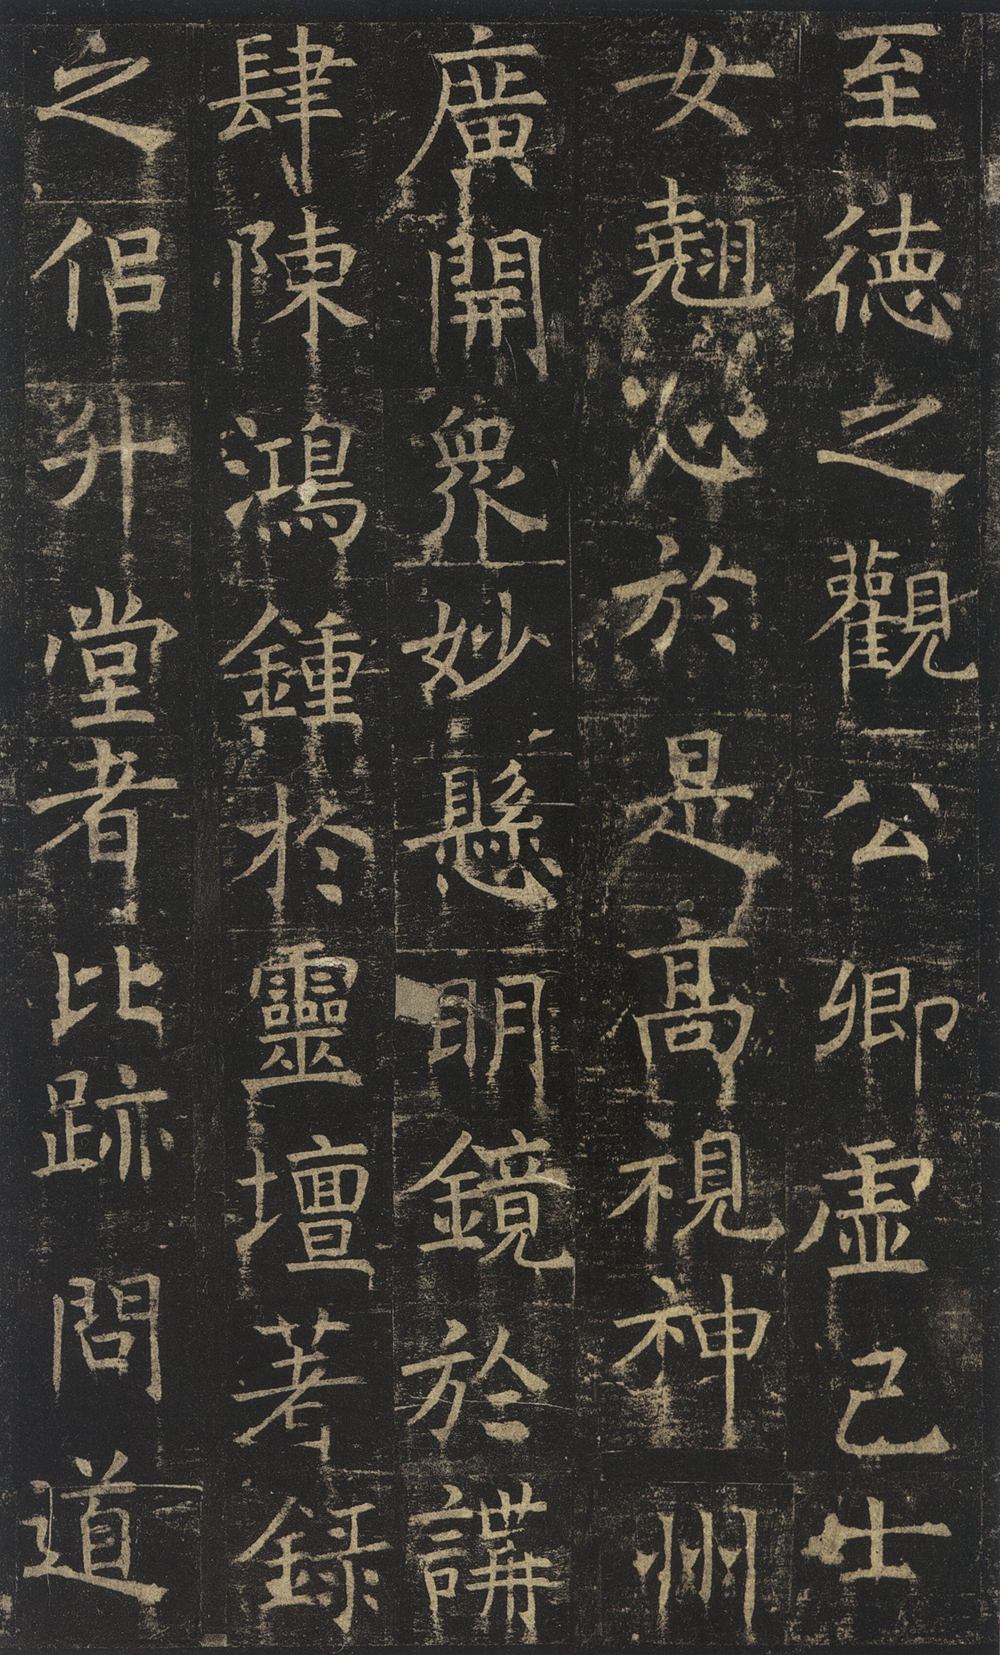 至德之觀公卿虛己士
女翹心於是高視神州
廣開眾妙懸明鏡於講
肆陳鴻鍾於靈壇著錄
之侶升堂者比跡問道